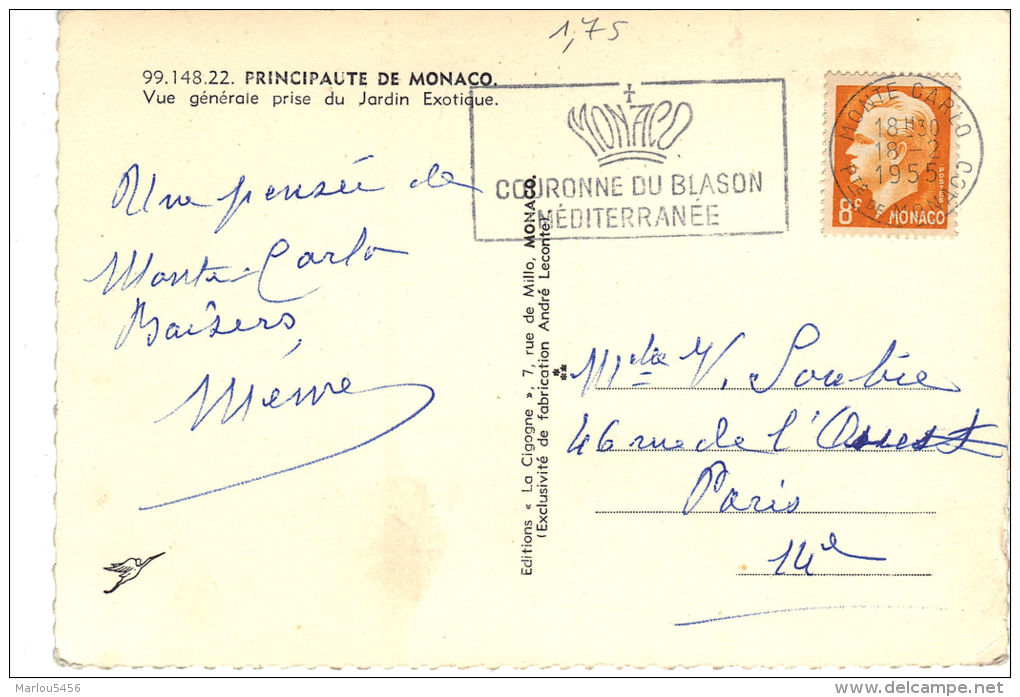 1,75
99.148.22. PRINCIPAUTE DE MONACO.
Vue générale prise du Jardin Exotique.
MONACO
COURONNE DU BLASON
MÉDITERRANÉE
MONTE CARLO
18H30
18-2
1955
PTÉ DE MONACO
8F MONACO
Une pensée de
Monte-Carlo
Baisers,
Mémé
Editions « La Cigogne », 7, rue de Millo, MONACO.
(Exclusivité de fabrication André Leconte)
Mlle V. Soubie
46 rue de l'Ouest
Paris
14e
Marlou5456